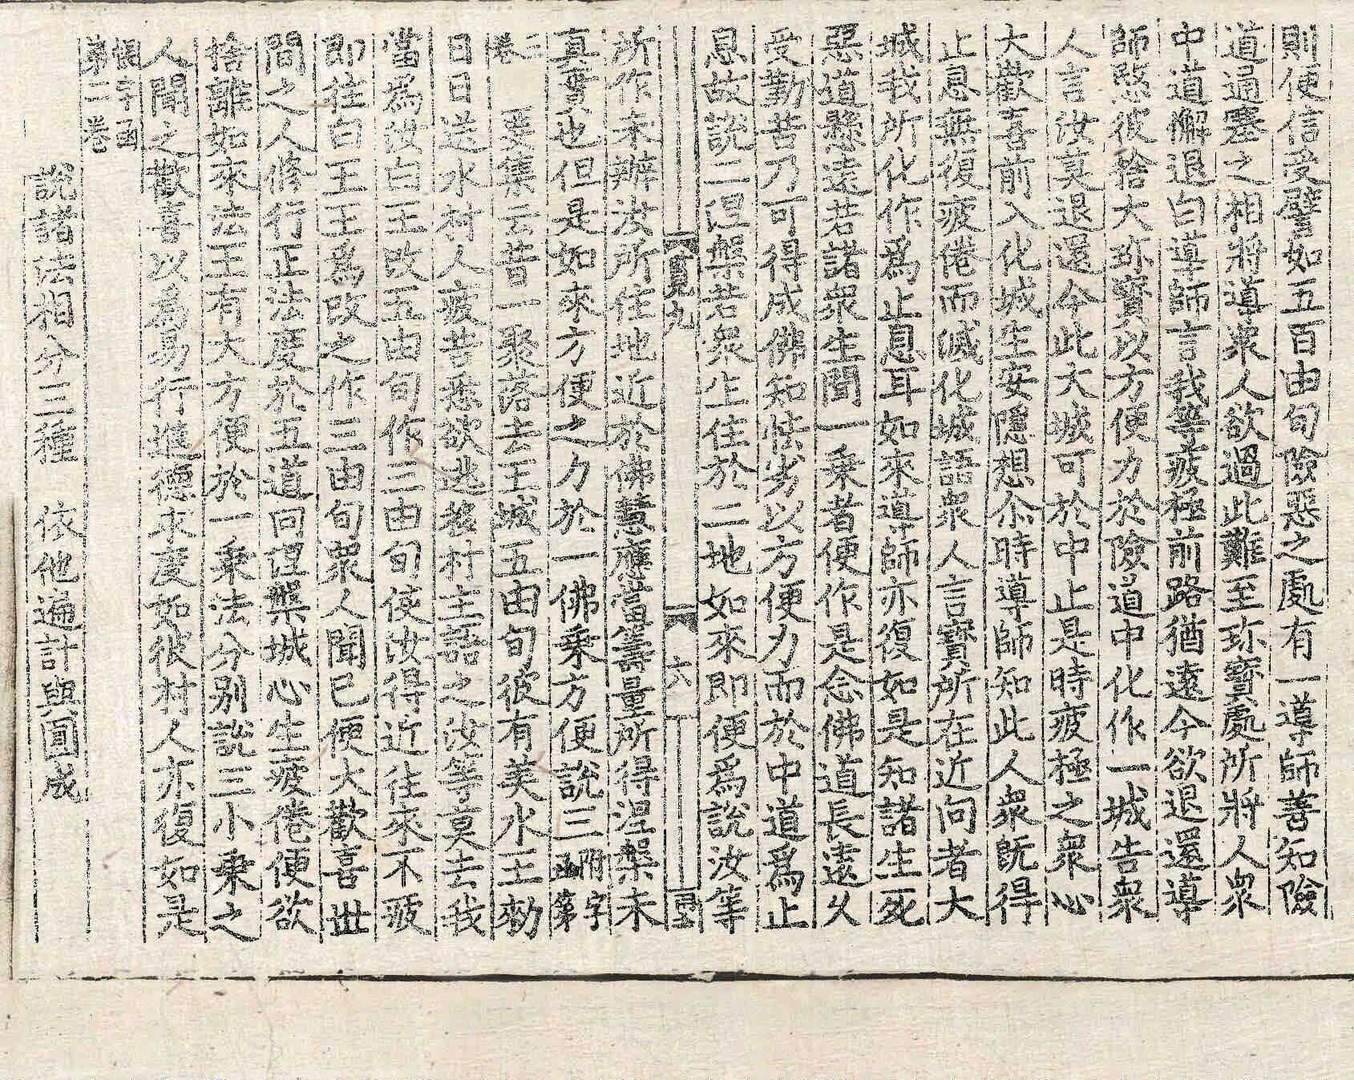 則便信受譬如五百由旬險惡之處有一導師善知險
道通塞之相將導衆人欲過此難至珎寶處所將人衆
中道懈退白導師言我等疲極前路猶遠今欲退還導
師愍彼捨大珎寶以方便力於險道中化作一城告衆
人言汝莫退還今此大城可於中止是時疲極之衆心
大歡喜前入化城生安隱想尒時導師知此人衆旣得
止息無復疲倦而滅化城語衆人言寶所在近向者大
城我所化作爲止息耳如來導師亦復如是知諸生死
惡道懸遠若諸衆生聞一乘者便作是念佛道長遠久
受勤苦乃可得成佛知怯劣以方便力而於中道爲止
息故說二涅槃若衆生住於二地如來即便爲說汝等
覽九 六
所作未辦汝所住地近於佛慧應當籌量所得涅槃未
真實也但是如來方便之力於一佛乘方便說三附字函第
二卷 要集云昔一聚落去王城五由旬彼有美水王勑
日日送水村人疲苦悉欲逃移村主語之汝等莫去我
當爲汝白王改五由旬作三由旬使汝得近往來不疲
即往白王王爲改之作三由旬衆人聞已便大歡喜世
間之人修行正法度於五道向涅槃城心生疲倦便欲
捨離如來法王有大方便於一乘法分别說三小乘之
人聞之歡喜以爲易行進德求度如彼村人亦復如是
字函第二卷
說諸法相分三種 依他遍計與圓成